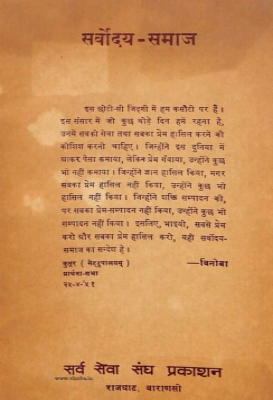 सर्वोदय-समाज
इस छोटी-सी जिंदगी में हम कसौटी पर हैं।
इस संसार में जो कुछ थोड़े दिन हमें रहना है,
उनमें सबकी सेवा तथा सबका प्रेम हासिल करने की
कोशिश करनी चाहिए। जिन्होंने इस दुनिया में
आकर पैसा कमाया, लेकिन प्रेम गँवाया, उन्होंने कुछ
भी नहीं कमाया। जिन्होंने ज्ञान हासिल किया, मगर
सबका प्रेम हासिल नहीं किया, उन्होंने कुछ भी
हासिल नहीं किया। जिन्होंने शक्ति सम्पादन की,
पर सबका प्रेम-सम्पादन नहीं किया, उन्होंने कुछ भी
सम्पादन नहीं किया। इसलिए, भाइयो, सबसे प्रेम
करो और सबका प्रेम हासिल करो, यही सर्वोदय-
समाज का सन्देश है।
—विनोबा
प्रार्थना-सभा
सर्व सेवा संघ प्रकाशन
राजघाट, वाराणसी